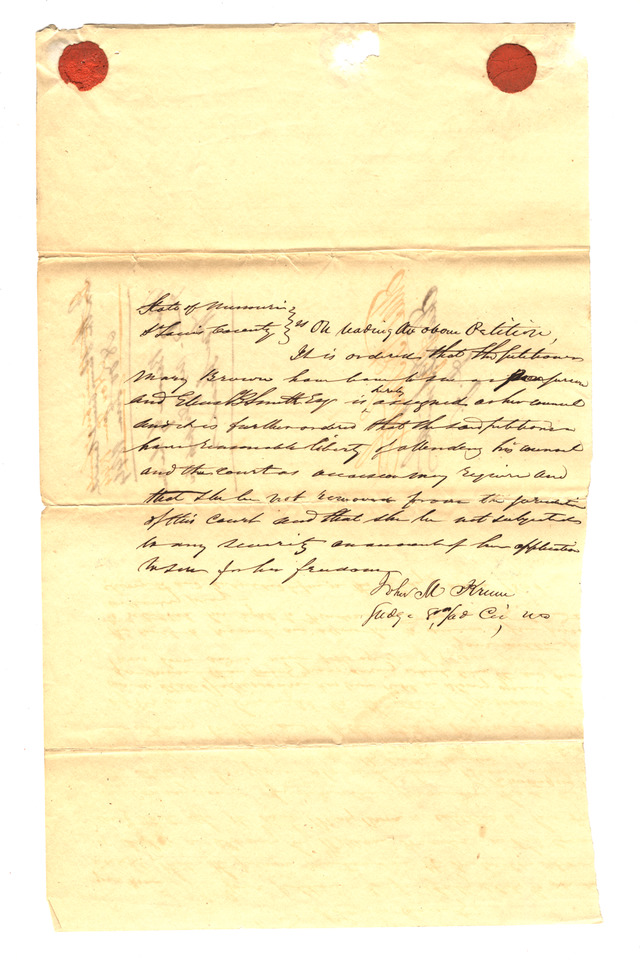 State of Missouri
St Louis County } ss On reading the above Petition,
It is ordered, that the petitioner
Mary Brown have leave to sue as a poor person
and Edward Smith Esq is hereby assigned as her counsel
and it is further ordered that the said petitioner
have reasonable liberty of attending his counsel
and the court as occasion may require and
that she be not removed from the jurisdiction
of this Court and that she be not subjected
to any severity on account of her application
to sue for her freedom
John M Krum
Judge 8th Jud Cir, Mo